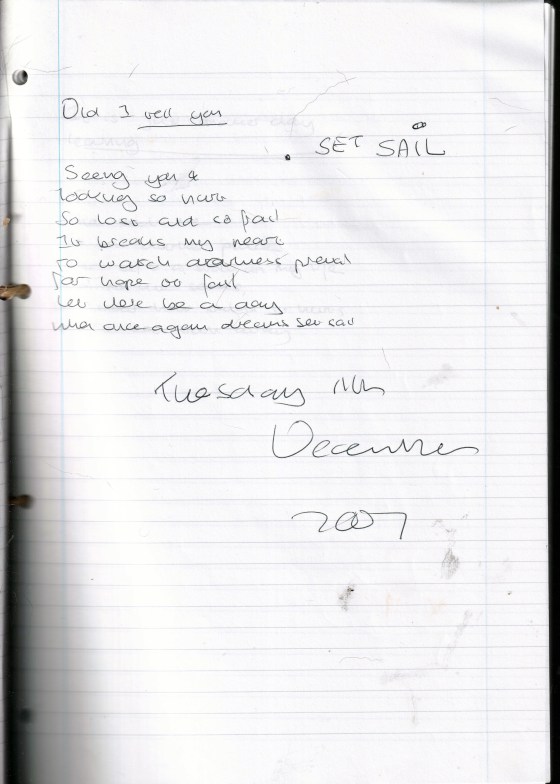 Did I tell you
SET SAIL
Seeing you
looking so hurt
So lost and so frail
It breaks my heart
To watch darkness prevail
For hope to fail
Let there be a day
When once again dreams set sail
Tuesday 11th
December
2007